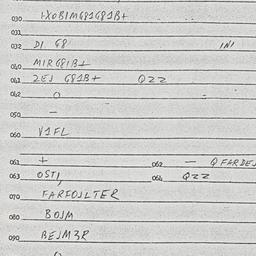 030 1XOBIMG81G81B+
031
032 DI G8 INI
040 MIRG81B+
041 2EJ G81B+ QZZ
042 O =
050 -
060 V1FL
061 + 062 - QFARDEJ
063 OSTI, 064 QZZ
070 FARFOJLTER
080 BOJM
090 BEJM3R